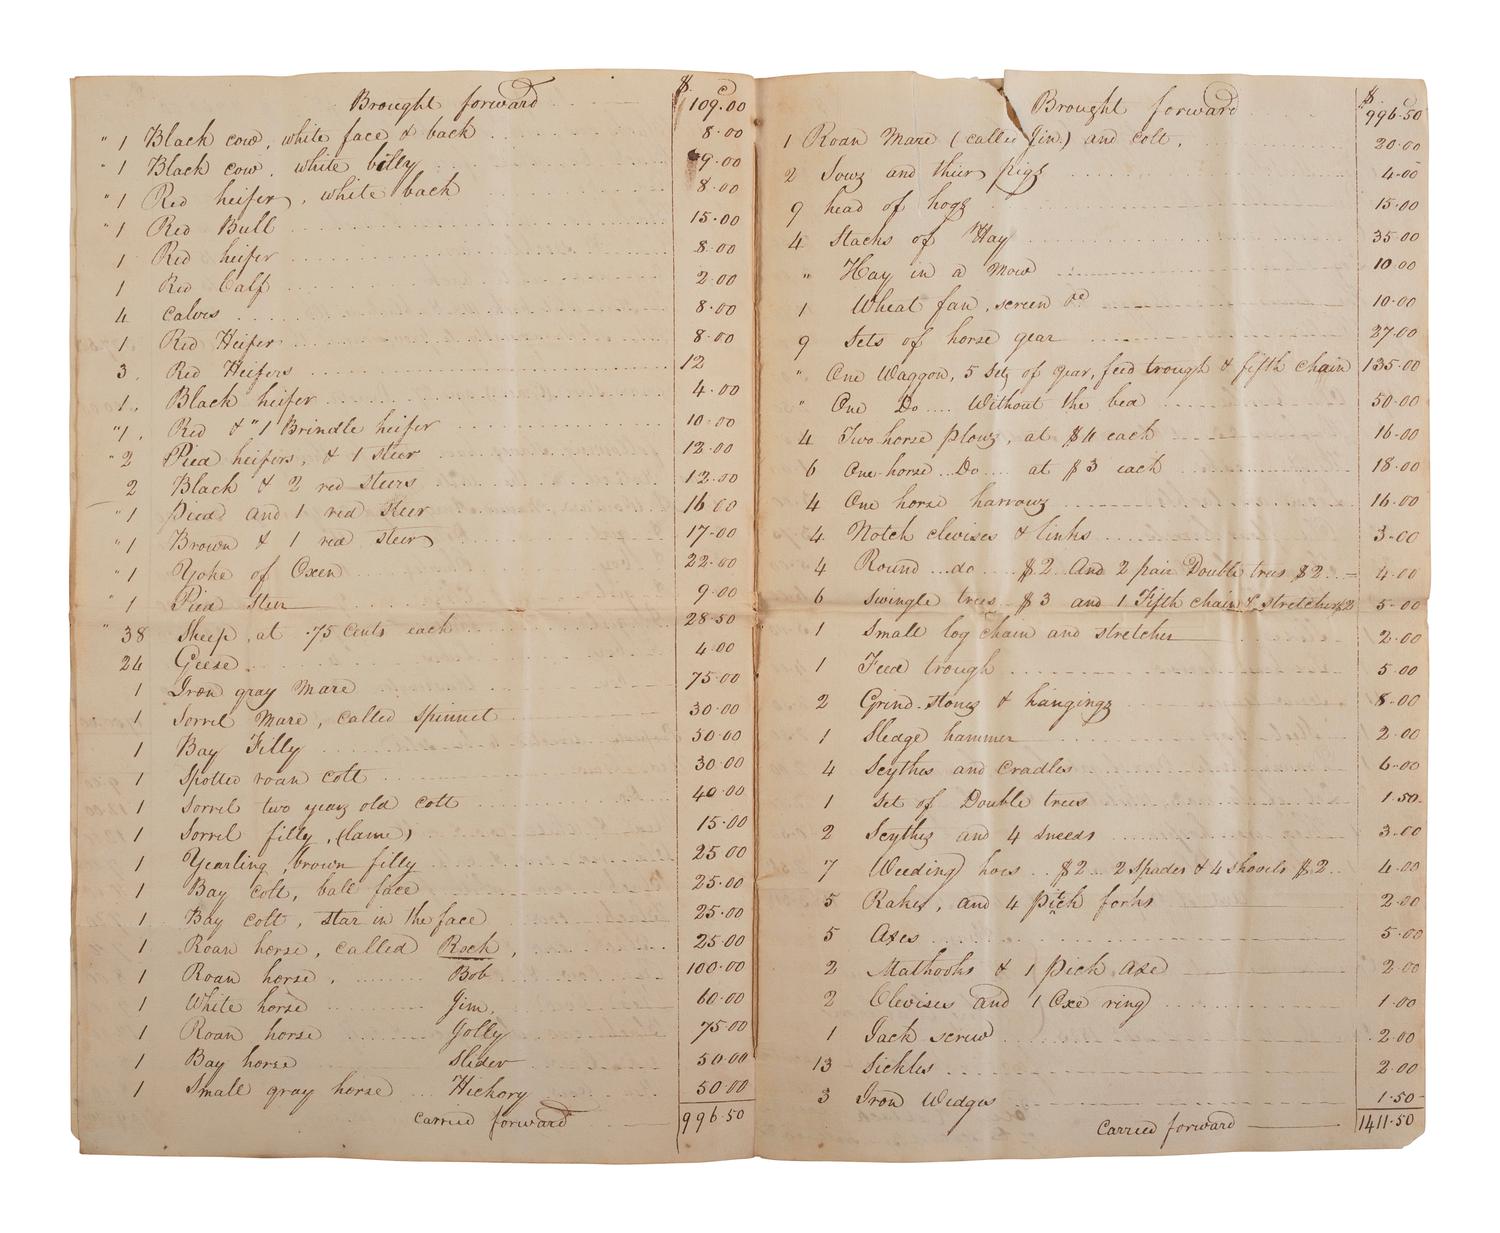 $ C
Brought forward 109.00
" 1 Black cow, white face & back 8.00
" 1 Black cow, white billy 9.00
" 1 Red heifer, white back 8.00
" 1 Red Bull 15.00
1 Red heifer 8.00
1 Red Calf 2.00
4 calves 8.00
1 Red Heifer 8.00
3. Red Heifers 12
1. Black heifer 4.00
"1. Red & "1 Brindle heifer 10.00
" 2 Pied heifers, & 1 steer 12.00
2 Black & 2 red steers 12.00
"1 pied and 1 red steer 16.00
"1 Brown & 1 red steer 17.00
"1 Yoke of Oxen 22.00
" 1 Pied steer 9.00
" 38 Sheep, at .75 cents each 28.50
24 Geese 4.00
1 Iron gray Mare 75.00
1 Sorrel Mare, called Spinnet 30.00
1 Bay Filly 50.00
1 Spotted roan colt 30.00
1 Sorrel two years old colt 40.00
1 Sorrel filly, (lame) 15.00
1 Yearling brown filly 25.00
1 Bay colt, ball face 25.00
1 Bay colt, star in the face 25.00
1 Roan horse, called Rock, 25.00
1 Roan horse, Bob 100.00
1 White horse Jim, 60.00
1 Roan horse Jolly 75.00
1 Bay horse Slider 50.00
1 Small gray horse Hickory 50.00
Carried forward 996.50
$ C
Brought forward 996.50
1 Roan Mare (called Jin) and colt, 20.00
2 Sows and thier pigs 4.00
9 head of hogs 15.00
4 Stacks of Hay 35.00
" Hay in a Mow 10.00
1 Wheat fan, screen &c 10.00
9 Sets of horse gear 27.00
" One Waggon, 5 sets of gear, feed trough & fifth chain 135.00
" One Do Without the bed 50.00
4 Two horse plows, at $4 each 16.00
6 One horse Do at $3 each 18.00
4 One horse harrows 16.00
4 Notch clevises & links 3.00
4 Round do $2 And 2 pair Double trees $2 4.00
6 Swingle trees $3 and 1 Fifth chain & stretcher $2 5.00
1 Small log chain and stretcher 2.00
1 Feed trough 5.00
2 Grind-stones & hangings 8.00
1 Sledge hammer 2.00
4 Scythes and Cradles 6.00
1 Set of Double trees 1.50
2 Scythes and 4 sneeds 3.00
7 Weeding hoes $2 2 Spades & 4 shovels $2 4.00
5 Rakes, and 4 pitch forks 2.00
5 Axes 5.00
2 Mathooks & 1 pick axe 2.00
2 Clevises and 1 Oxe ring 1.00
1 Jack screw 2.00
13 Sickles 2.00
3 Iron Wedges 1.50
Carried forward 1411.50